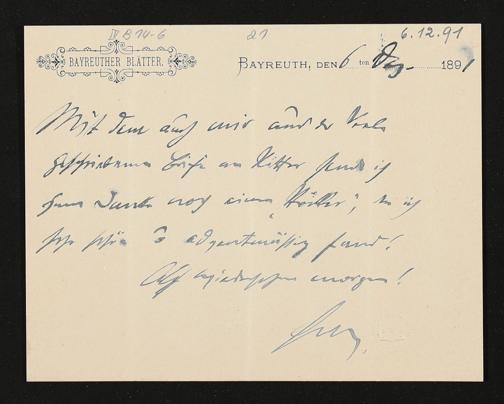 IV B 14-6
21
6.12.91
BAYREUTHER BLÄTTER.
BAYREUTH, DEN 6 ten Dez. 1891
Mit dem auch mir aus der Seele
geschriebenen Briefe an Ritter send ich
zum Danke noch einen "Hölter", den ich
sehr schön & adventmässig fand!
Auf Wiedersehen morgen!